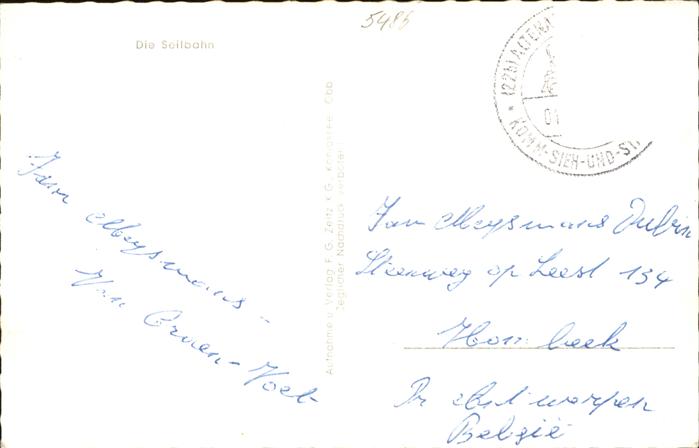 5485
Die Seilbahn
(22b) ALTENA
01
* KOMM-SIEH-UND-ST
Aufnahme u. Verlag F. G. Zeitz K G., Königssee, Obb
Jeglicher Nachdruck verboten
Fam Meysmans -
Van Cruen - Voet
Fam Meysmans Dubin
Steenweg op Leest 134
Hombeek
Pr Antwerpen
België